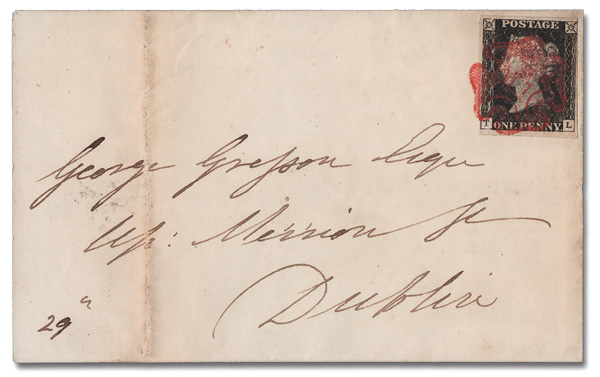 POSTAGE
T ONE PENNY L
George Gresson Esqre
Up: Merrion St
Dublin
29